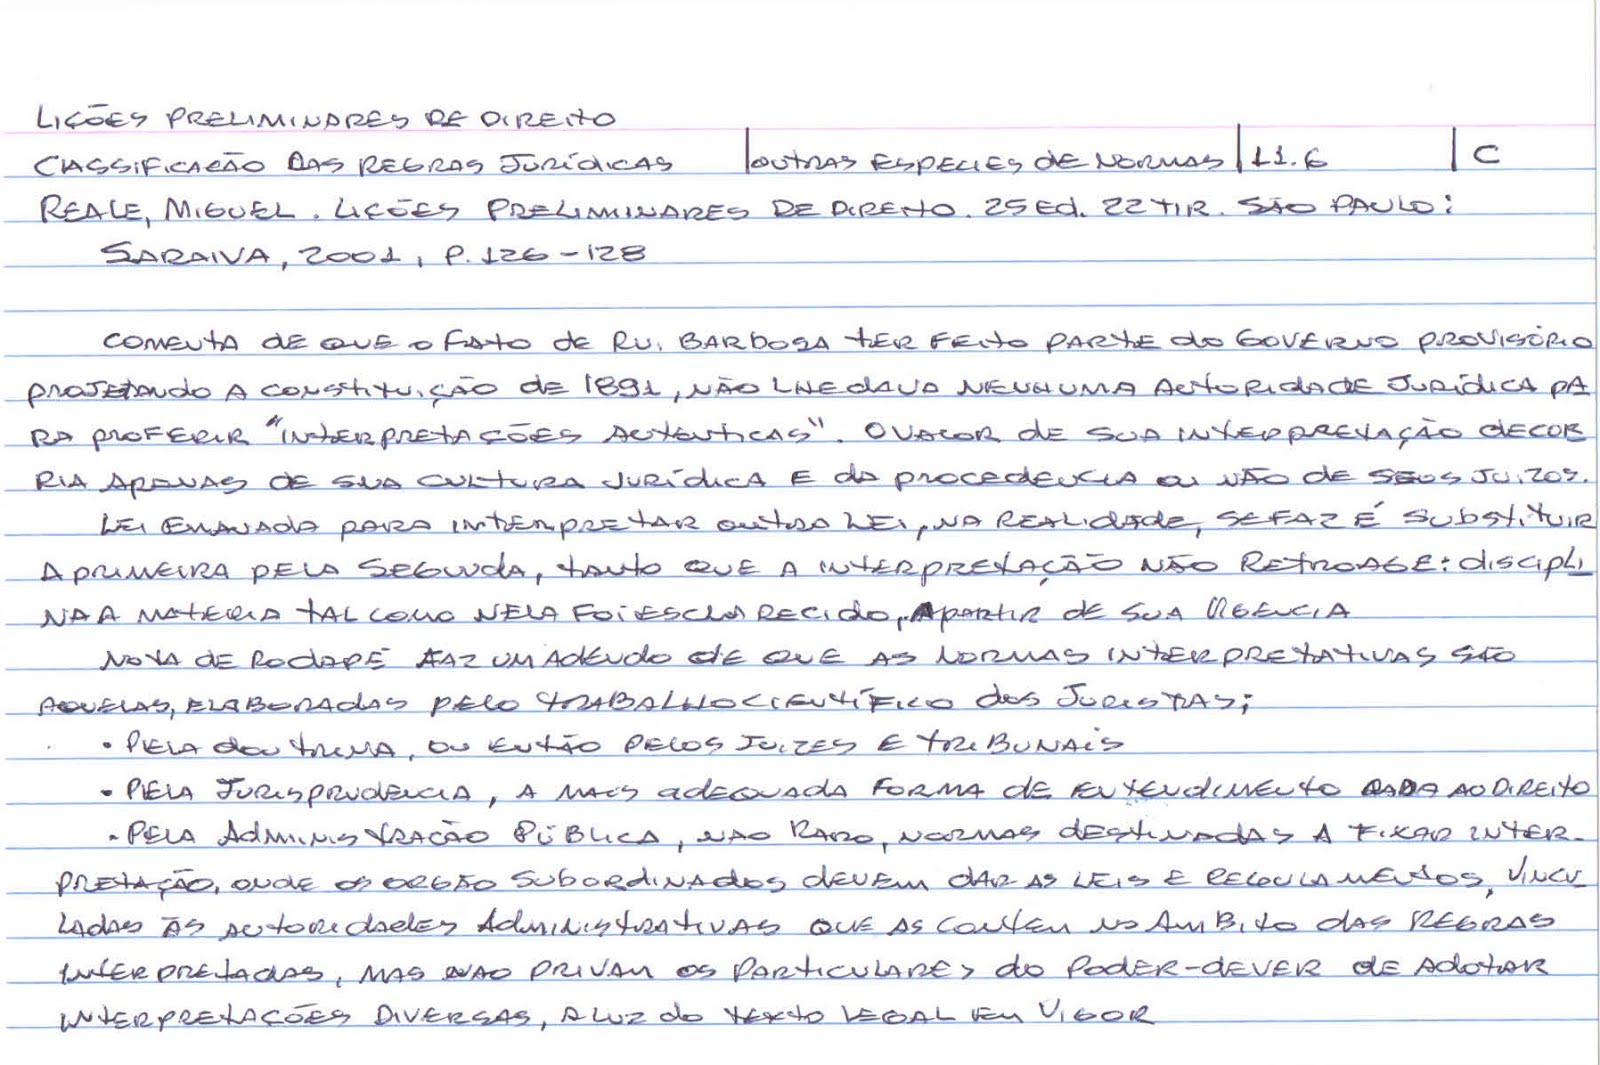 LIÇÕES PRELIMINARES DE DIREITO
CLASSIFICAÇÃO DAS REGRAS JURÍDICAS | OUTRAS ESPECIES DE NORMAS | 11.6 | C
REALE, MIGUEL. LIÇÕES PRELIMINARES DE DIREITO. 25 ED. 22 TIR. SÃO PAULO:
SARAIVA, 2001, P. 126-128
COMENTA DE QUE O FATO DE RUI BARBOSA TER FEITO PARTE DO GOVERNO PROVISÓRIO
PROJETANDO A CONSTITUIÇÃO DE 1891, NÃO LHE DAVA NENHUMA AUTORIDADE JURÍDICA PA
RA PROFERIR "INTERPRETAÇÕES AUTÊNTICAS". O VALOR DE SUA INTERPRETAÇÃO DECOR
RIA APENAS DE SUA CULTURA JURÍDICA E DA PROCEDENCIA OU NÃO DE SEUS JUIZOS.
LEI EMANADA PARA INTERPRETAR OUTRA LEI, NA REALIDADE, SE FAZ É SUBSTITUIR
A PRIMEIRA PELA SEGUNDA, TANTO QUE A INTERPRETAÇÃO NÃO RETROAGE: DISCIPLI
NA A MATERIA TAL COMO NELA FOI ESCLARECIDO, A PARTIR DE SUA VIGENCIA
NOTA DE RODAPÉ FAZ UM ADENDO DE QUE AS NORMAS INTERPRETATIVAS SÃO
AQUELAS, ELABORADAS PELO TRABALHO CIENTÍFICO DOS JURISTAS;
• PELA DOUTRINA, OU ENTÃO PELOS JUIZES E TRIBUNAIS
• PELA JURISPRUDENCIA, A MAIS ADEQUADA FORMA DE ENTENDIMENTO DADA AO DIREITO
• PELA ADMINISTRAÇÃO PÚBLICA, NÃO RARO, NORMAS DESTINADAS A FIXAR INTER-
PRETAÇÃO, ONDE OS ORGÃO SUBORDINADOS DEVEM DAR AS LEIS E REGULAMENTOS, VINCU
LADAS ÀS AUTORIDADES ADMINISTRATIVAS QUE AS CONTEM NO AMBITO DAS REGRAS
INTERPRETADAS, MAS NAO PRIVAM OS PARTICULARES DO PODER-DEVER DE ADOTAR
INTERPRETAÇÕES DIVERSAS, A LUZ DO TEXTO LEGAL EM VIGOR